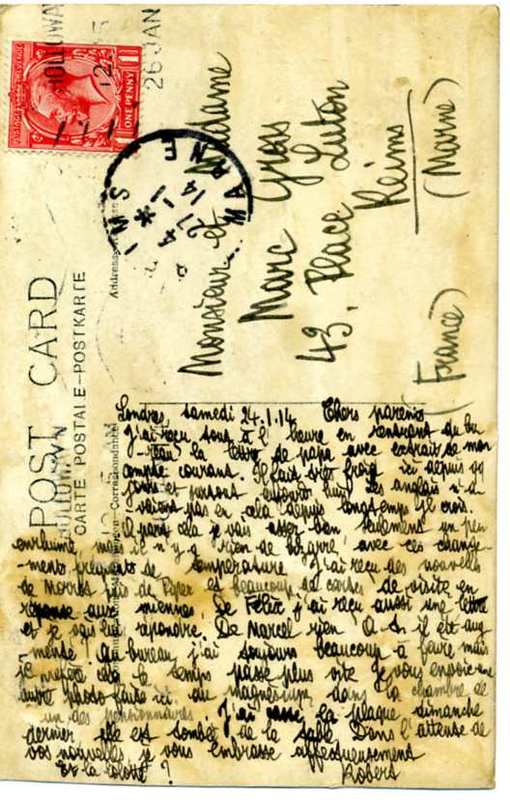 POST CARD
CARTE POSTALE-POSTKARTE
Correspondance
HOLLOWAY
12
26 JAN
ONE PENNY
MARNE
27-1
14
Monsieur et Madame
Marc Gross
43, Place Luton
Reims
(Marne)
(France)
Londres, samedi 24.1.14. Chers parents
J'ai reçu tout à l'heure en rentrant du bu-
reau la lettre de papa avec extrait de mon
compte courant. Il fait très froid ici depuis qq
jours et surtout aujourd'hui les anglais n'a-
vaient pas eu cela depuis longtemps je crois.
A part cela je vais assez bien seulement un peu
enrhumé, mais il n'y a rien de bizarre avec ces change-
ments fréquents de température. J'ai reçu des nouvelles
de et beaucoup de cartes de visite en
réponse aux miennes. De Félix j'ai reçu aussi une lettre
et je vais lui répondre. De Marcel rien. A-t-il été aug-
menté? Au bureau j'ai toujours beaucoup à faire mais
je préfère cela le temps passe plus vite. Je vous envoie une
autre photo faite ici au magnésium dans la chambre de
un des pensionnaires. J'ai cassé la plaque dimanche
dernier elle est tombée de la table. Dans l'attente de
vos nouvelles je vous embrasse affectueusement
Et la culotte ? Robert